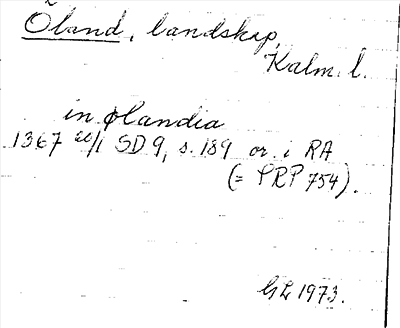 Öland, landskap,
Kalm. l.
in ølandia
1367 20/1 SD 9, s. 189 or. i RA
(= PRP 754).
GL 1973.